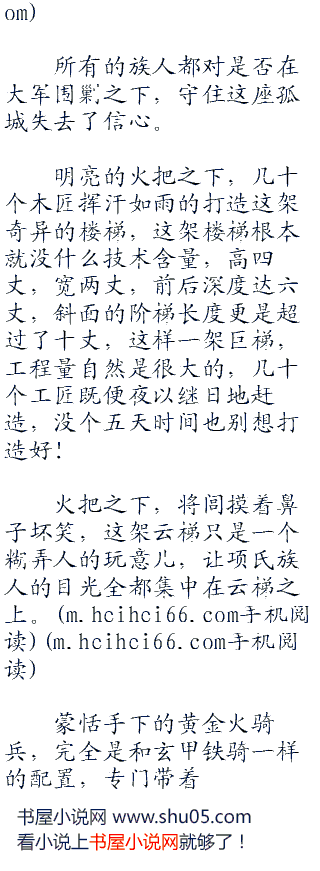 om)
所有的族人都对是否在
大军围剿之下，守住这座孤
城失去了信心。
明亮的火把之下，几十
个木匠挥汗如雨的打造这架
奇异的楼梯，这架楼梯根本
就没什么技术含量，高四
丈，宽两丈，前后深度达六
丈，斜面的阶梯长度更是超
过了十丈，这样一架巨梯，
工程量自然是很大的，几十
个工匠既便夜以继日地赶
造，没个五天时间也别想打
造好！
火把之下，将闾摸着鼻
子坏笑，这架云梯只是一个
糊弄人的玩意儿，让项氏族
人的目光全都集中在云梯之
上。(m.hcihci66.com手机阅
读)(m.hcihci66.com手机阅
读)
蒙恬手下的黄金火骑
兵，完全是和玄甲铁骑一样
的配置，专门带着
书屋小说网 www.shu05.com
看小说上书屋小说网就够了！